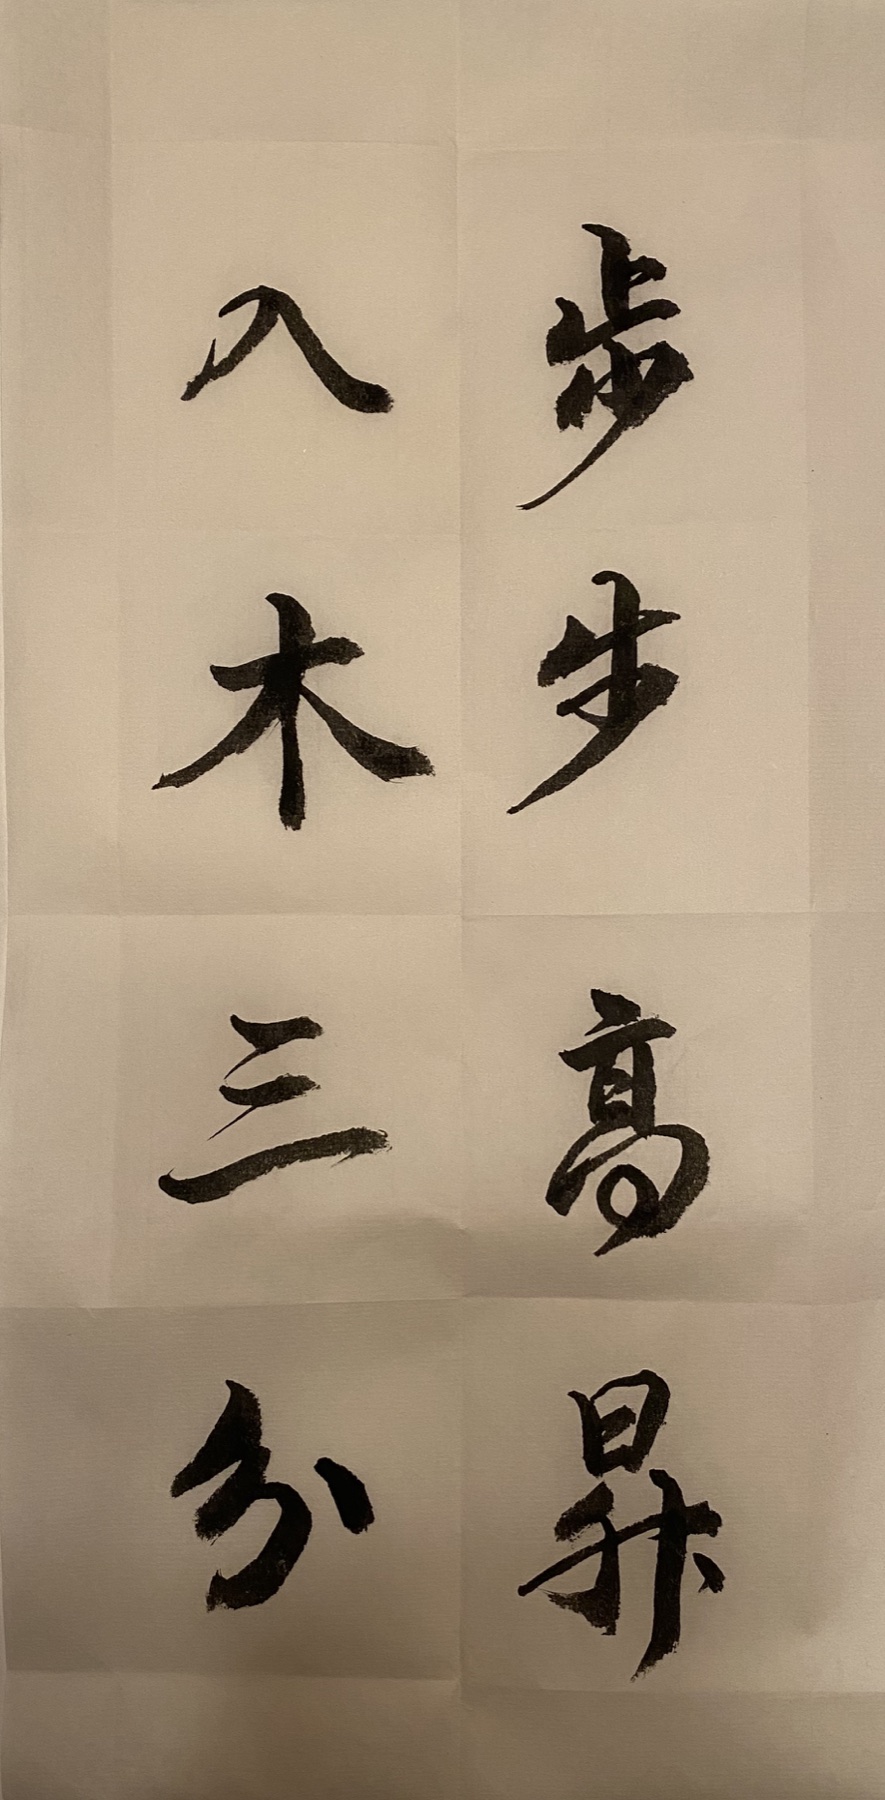 步步高昇
入木三分